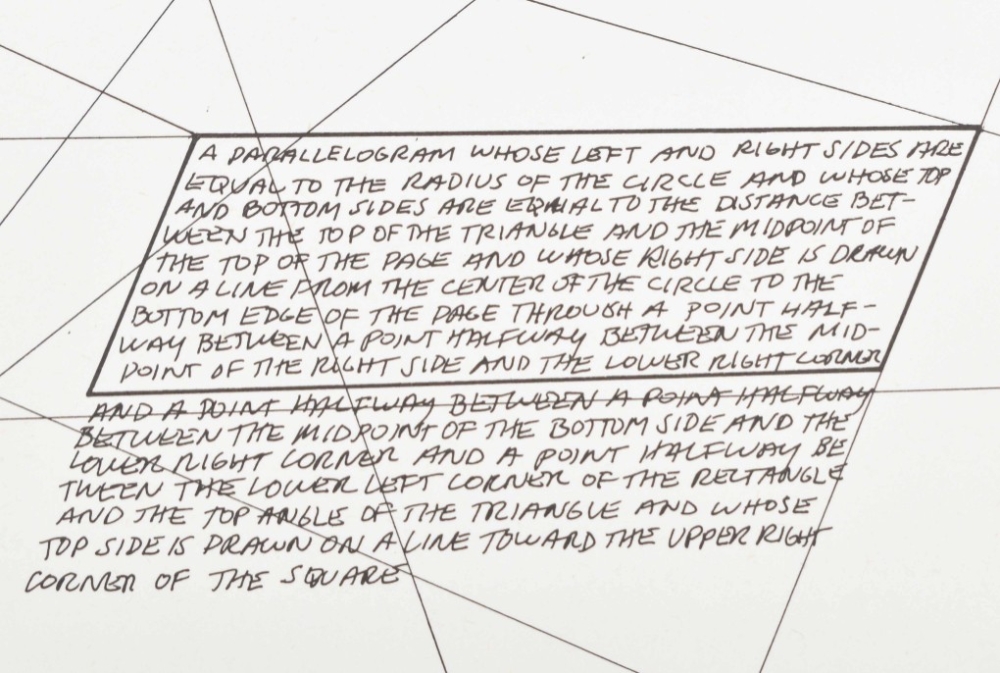 A PARALLELOGRAM WHOSE LEFT AND RIGHT SIDES ARE
EQUAL TO THE RADIUS OF THE CIRCLE AND WHOSE TOP
AND BOTTOM SIDES ARE EQUAL TO THE DISTANCE BET-
WEEN THE TOP OF THE TRIANGLE AND THE MIDPOINT OF
THE TOP OF THE PAGE AND WHOSE RIGHT SIDE IS DRAWN
ON A LINE FROM THE CENTER OF THE CIRCLE TO THE
BOTTOM EDGE OF THE PAGE THROUGH A POINT HALF-
WAY BETWEEN A POINT HALFWAY BETWEEN THE MID-
POINT OF THE RIGHT SIDE AND THE LOWER RIGHT CORNER
AND A POINT HALFWAY BETWEEN A POINT HALFWAY
BETWEEN THE MIDPOINT OF THE BOTTOM SIDE AND THE
LOWER RIGHT CORNER AND A POINT HALFWAY BE
TWEEN THE LOWER LEFT CORNER OF THE RECTANGLE
AND THE TOP ANGLE OF THE TRIANGLE AND WHOSE
TOP SIDE IS DRAWN ON A LINE TOWARD THE UPPER RIGHT
CORNER OF THE SQUARE